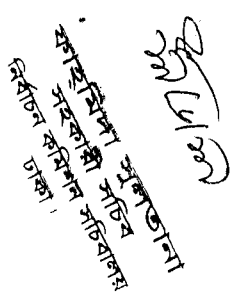 সুলতানা
সহকারী সচিব
নির্বাচন কমিশন সচিবালয়
ঢাকা।